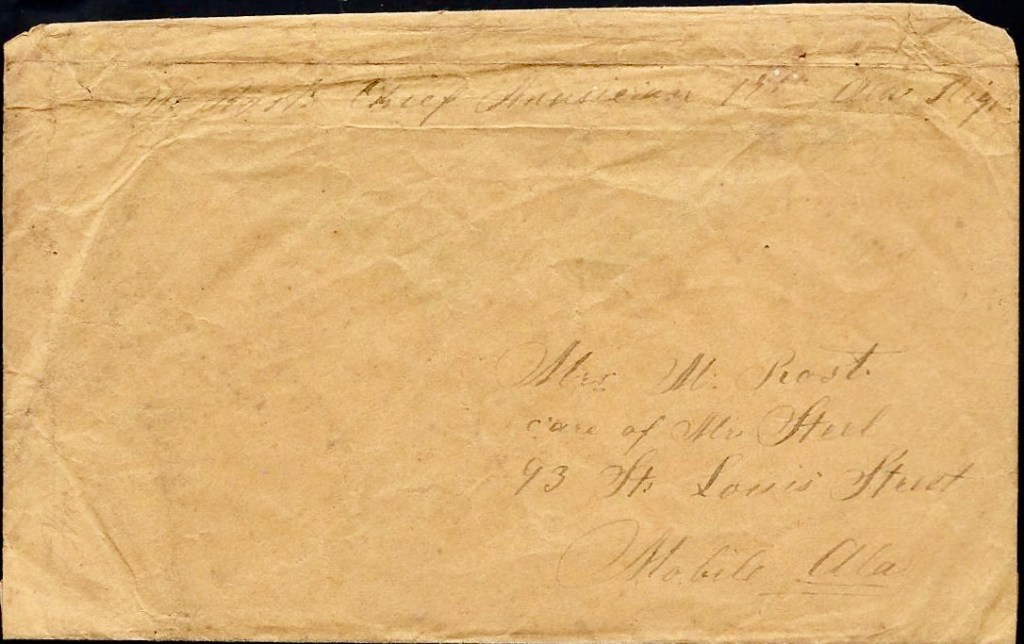 Chief Musician 17th Ala Reg.
Mrs M. Rost.
care of Mr Steel
93 St. Louis Street
Mobile Ala